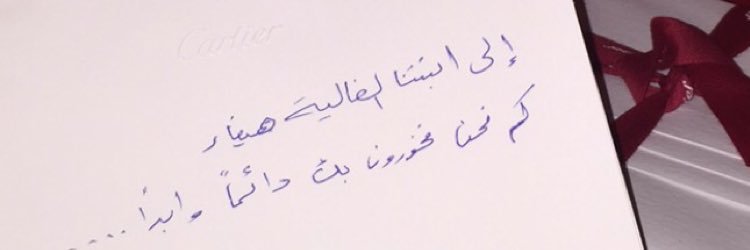 Cartier
إلى ابنتنا الغالية هيفاء
كم نحن فخورون بك دائماً وابداً.....